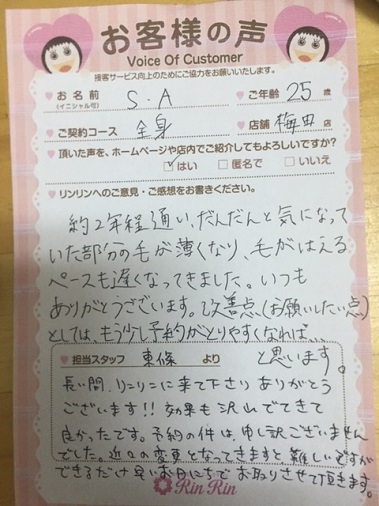 お客様の声
Voice Of Customer
接客サービス向上のためにご協力をお願いいたします。
お名前 (イニシャル可) S.A ご年齢 25 歳
ご契約コース 全身 店舗 梅田 店
頂いた声を、ホームページや店内でご紹介してもよろしいですか?
はい 匿名で いいえ
リンリンへのご意見・ご感想をお書きください。
約2年程通い、だんだんと気になって
いた部分の毛が薄くなり、毛がはえる
ペースも遅くなってきました。いつも
ありがとうございます。改善点(お願いしたい点)
としては、もう少し予約がとりやすくなれば...
と思います。
担当スタッフ 東條 より
長い間、リンリンに来て下さりありがとう
ございます!!効果も沢山でてきて
良かったです。予約の件は、申し訳ございません
でした。近々の変更となってきますと、難しいですが
できるだけ早いお日にちでお取りさせて頂きます。
Rin Rin